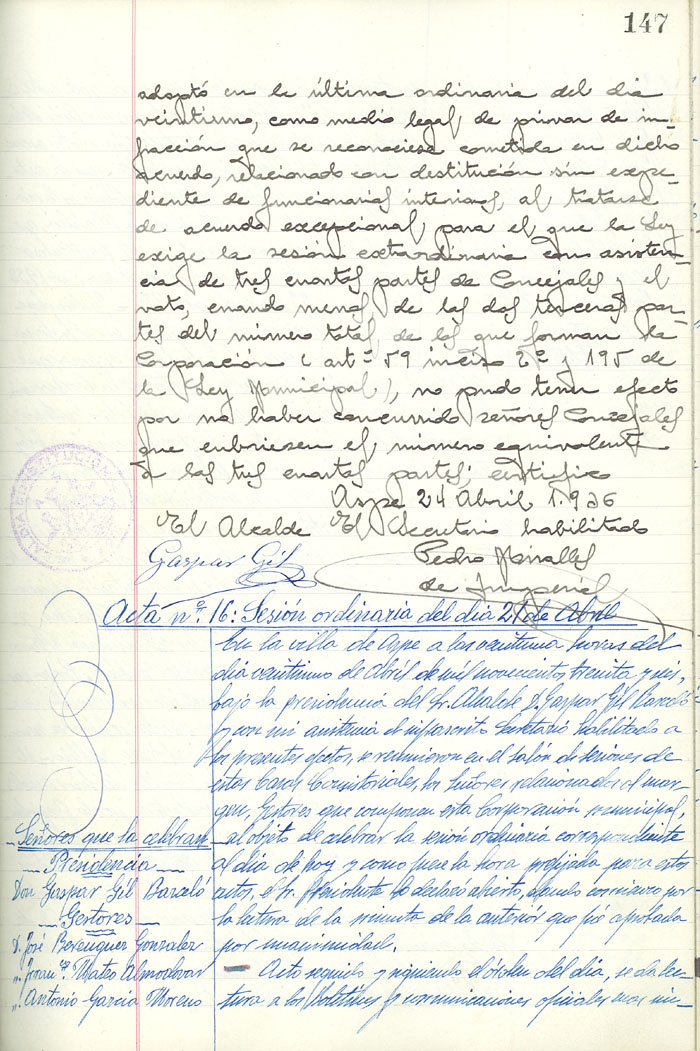 147
adoptó en la última ordinaria del dia
veintiuno, como medio legal de privar de in-
fracción que se reconociese cometida en dicho
acuerdo, relacionado con destitución sin expe-
diente de funcionarios interinos, al tratarse
de acuerdo excepcional para el que la Ley
exige la sesión extraordinaria con asisten-
cia de tres cuartas partes de Concejales y el
voto, cuando menos, de las dos terceras par-
tes del número total de los que forman la
Corporación (artº 59 inciso 2º y 195 de
la Ley Municipal), no pudo tener efecto
por no haber concurrido señores Concejales
que cubriesen el número equivalente
a las tres cuartas partes; certifico
Aspe 24 Abril 1.936
El Alcalde El Secretario habilitado
Gaspar Gil
Pedro Miralles
de Imperial
Acta nº. 16: Sesión ordinaria del dia 21 de Abril
En la villa de Aspe a las veintiuna horas del
dia veintiuno de Abril de mil novecientos treinta y seis,
bajo la presidencia del Sr. Alcalde D. Gaspar Gil Barceló
y con mi asistencia el infrascrito Secretario habilitado a
los presentes efectos, se reunieron en el salón de sesiones de
estas Casas Consistoriales, los Señores relacionados al mar-
gen, Gestores que componen esta Corporación municipal,
al objeto de celebrar la sesión ordinaria correspondiente
al dia de hoy y como fuese la hora prefijada para estos
actos, el Sr. Presidente la declaró abierta, dando comienzo por
la lectura de la minuta de la anterior que fué aprobada
por unanimidad.
Señores que la celebran
Presidencia
Don Gaspar Gil Barceló
Gestores
D. José Berenguer Gonzalez
" Mateo Almodovar
" Antonio García Moreno
Acto seguido y siguiendo el órden del dia, se da lec-
tura a los Boletines y comunicaciones oficiales mas in-